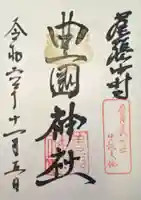 尾張中村
豊國神社
令和六年十一月五日